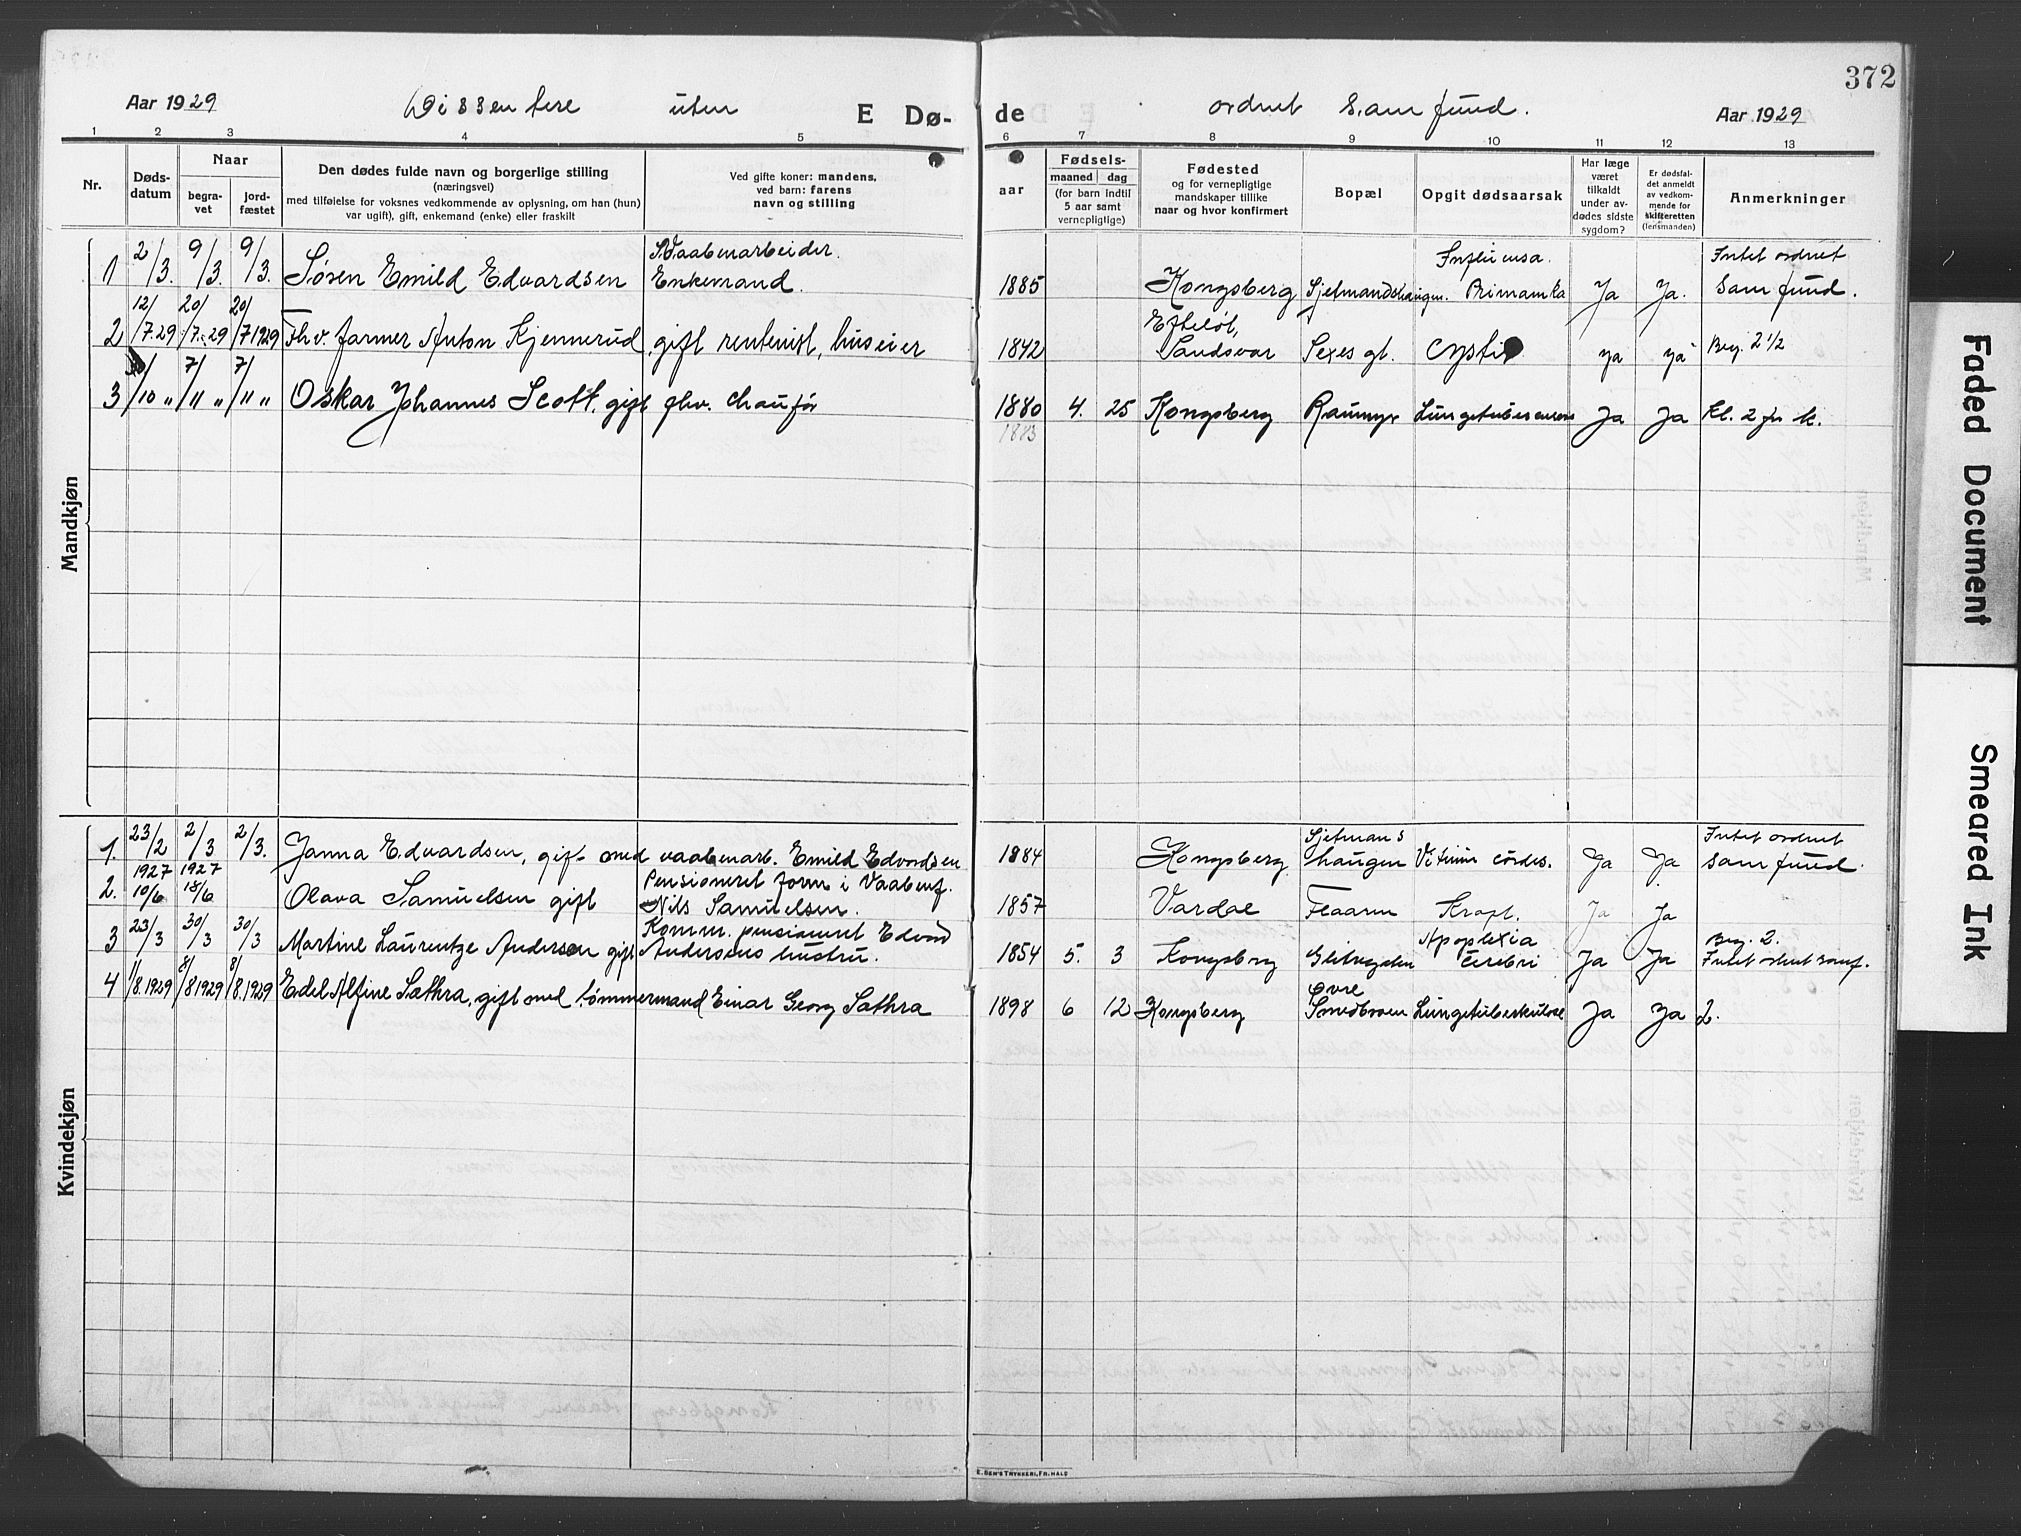 372
Aar 1929 Dissentere uten E Dø- de ordnet Samfund. Aar 1929
1 2 3 4 5 6 7 8 9 10 11 12 13
Nr.
Døds-
datum
Naar
begra-
vet
jord-
fæstet
Den dødes fulde navn og borgerlige stilling
(næringsvei)
med tilføielse for voksnes vedkommende av oplysning, om han (hun)
var ugift), gift, enkemand (enke) eller fraskilt
Ved gifte koner: mandens,
ved barn: farens
navn og stilling
aar
Fødsels-
maaned dag
(for barn indtil
5 aar samt
vernepligtige)
Fødested
og for vernepligtige
mandskaper tillike
naar og hvor konfirmert
Bopæl
Opgit dødsaarsak
Har læge
været
tilkaldt
under av-
dødes sidste
sygdom?
Er dødsfal-
det anmeldt
av vedkom-
mende for
skifteretten
(lensmanden)
Anmerkninger
Mandkjøn
2/3. 9/3. 9/3. Vaabenarbeider. Influensa. Intet ordnet
1 Søren Emild Edvardsen Enkemand. 1885 Kongsberg Ja Ja. Samfund.
12/7.29 20/7.29 20/7 1929 Efteløt,
2 Fhv. farmer Anton Kjennerud, gift rentenist, huseier 1842 Sandsvær ya ya Beg. 2 1/2
/10 " 7/11 " 7/11 "
3 Oskar Johannes Scott, gift fhv. chaufør 1880 4. 25 Kongsberg Ja Ja Kl. 2 fr k.
1883
Kvindekjøn
23/2 2/3 2/3. Sjetmans Intet ordnet
1. Janna Edvardsen, gift med vaabenarb. Emild Edvardsen 1884 Kongsberg haugen Vitium cordes. Ja Ja samfund.
1927 1927 Pensioneret form i Vaabenf.
2. 10/6 18/6 Olava Samuelsen gift Nils Samuelsen. 1857 Vardal Flaaren Kræft. Ja Ja
23/3 30/3 30/3 Komm. pensioneret Edvard Apoplexia Beg. 2.
3 Martine Laurentze Andersen gift Andersens hustru. 1854 5. 3 Kongsberg cerebri Ja Ja Intet ordnet samf.
1/8.1929 8/8 1929 8/8.1929 øvre
4 Edel Alfine Sæthra, gift med tømmermand Einar Georg Sæthra 1898 6 12 Kongsberg Smedbroen Lungetuberkulose Ja Ja 2.
E. SEM'S TRYKKERI, FR.HALD
Faded Document
Smeared Ink